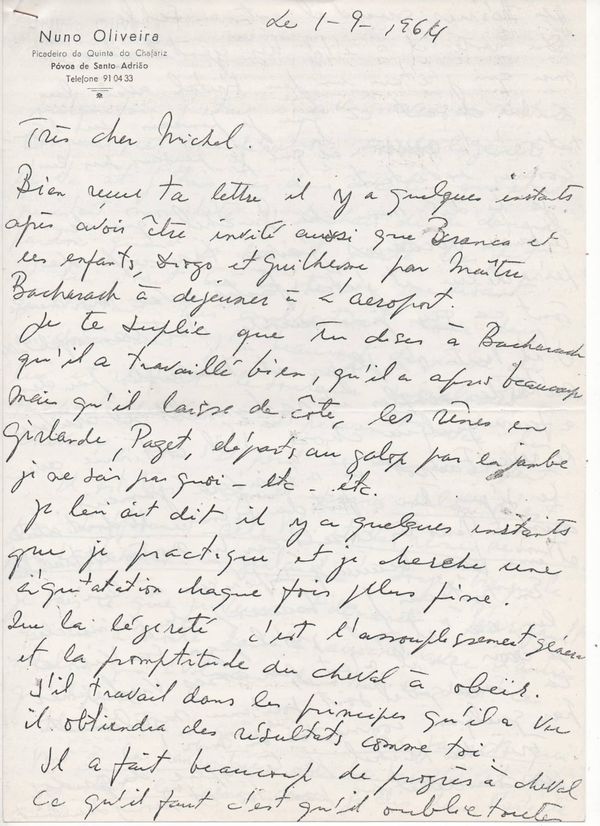 Nuno Oliveira
Picadeiro da Quinta do Chafariz
Póvoa de Santo Adrião
Telefone 91 04 33
Le 1-9-1964
Très cher Michel.
Bien reçue ta lettre il y a quelques instants
après avoir être invité aussi que Branca et
les enfants, Diogo et Guilherme par Maître
Bacharach à dejeuner à l'aeroport.
Je te suplie que tu dises à Bacharach
qu'il a travaillé bien, qu'il a apris beaucoup
mais qu'il laisse de côte, les rênes en
Girlande, Paget, départs au galop par la jambe
je ne sais pas quoi - etc - etc.
Je lui ait dit il y a quelques instants
que je practique et je cherche une
équitatation chaque fois plus fine.
Que la légereté c'est l'assouplissement géneral
et la promptitude du cheval à obeir.
S'il travail dans les principes qu'il a vu
il obtiendra des résultats comme toi.
Il a fait beaucoup de progrès à cheval
Ce qu'il faut c'est qu'il oublie toutes